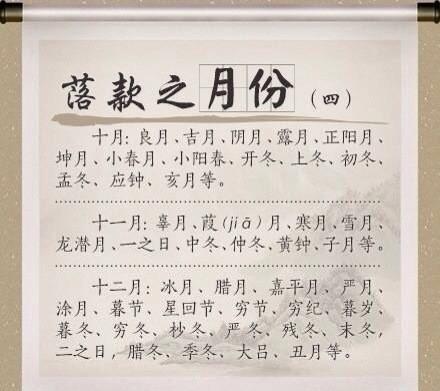 落款之月份（四）
十月: 良月、吉月、阴月、露月、正阳月、
坤月、小春月、小阳春、开冬、上冬、初冬、
孟冬、应钟、亥月等。
十一月: 辜月、葭(jiā)月、寒月、雪月、
龙潜月、一之日、中冬、仲冬、黄钟、子月等。
十二月: 冰月、腊月、嘉平月、严月、
涂月、暮节、星回节、穷节、穷纪、暮岁、
暮冬、穷冬、杪冬、严冬、残冬、末冬、
二之日，腊冬、季冬、大吕、丑月等。